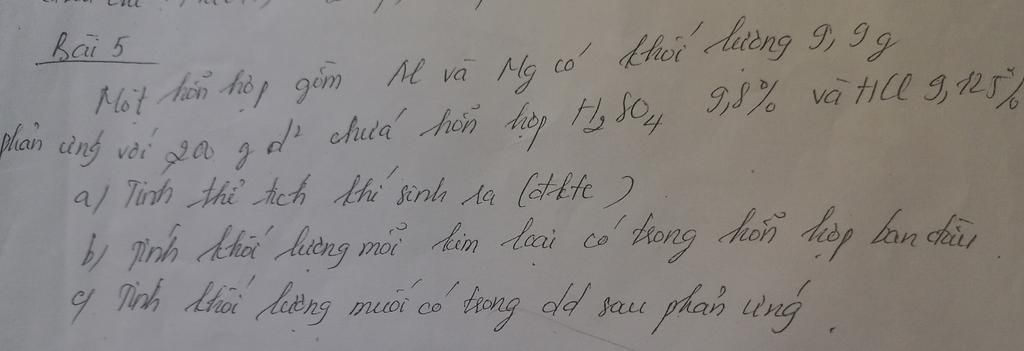 Bài 5
Một hỗn hợp gồm Al và Mg có khối lượng 9,9g
phản ứng với 200 g d² chứa hỗn hợp H₂SO₄ 9,8% và HCl 9,125%
a) Tính thể tích khí sinh ra (đktc)
b) Tính khối lượng mỗi kim loại có trong hỗn hợp ban đầu
c) Tính khối lượng muối có trong dd sau phản ứng.